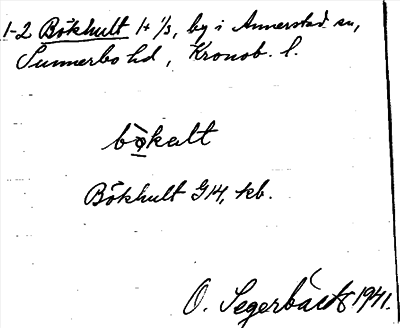 1-2 Bökhult 1+1/3, by i Annerstad sn,
Sunnerbo hd, Kronob. l.
bø̀kalt
Bökhult G14, kb.
O. Segerbäck 1941.